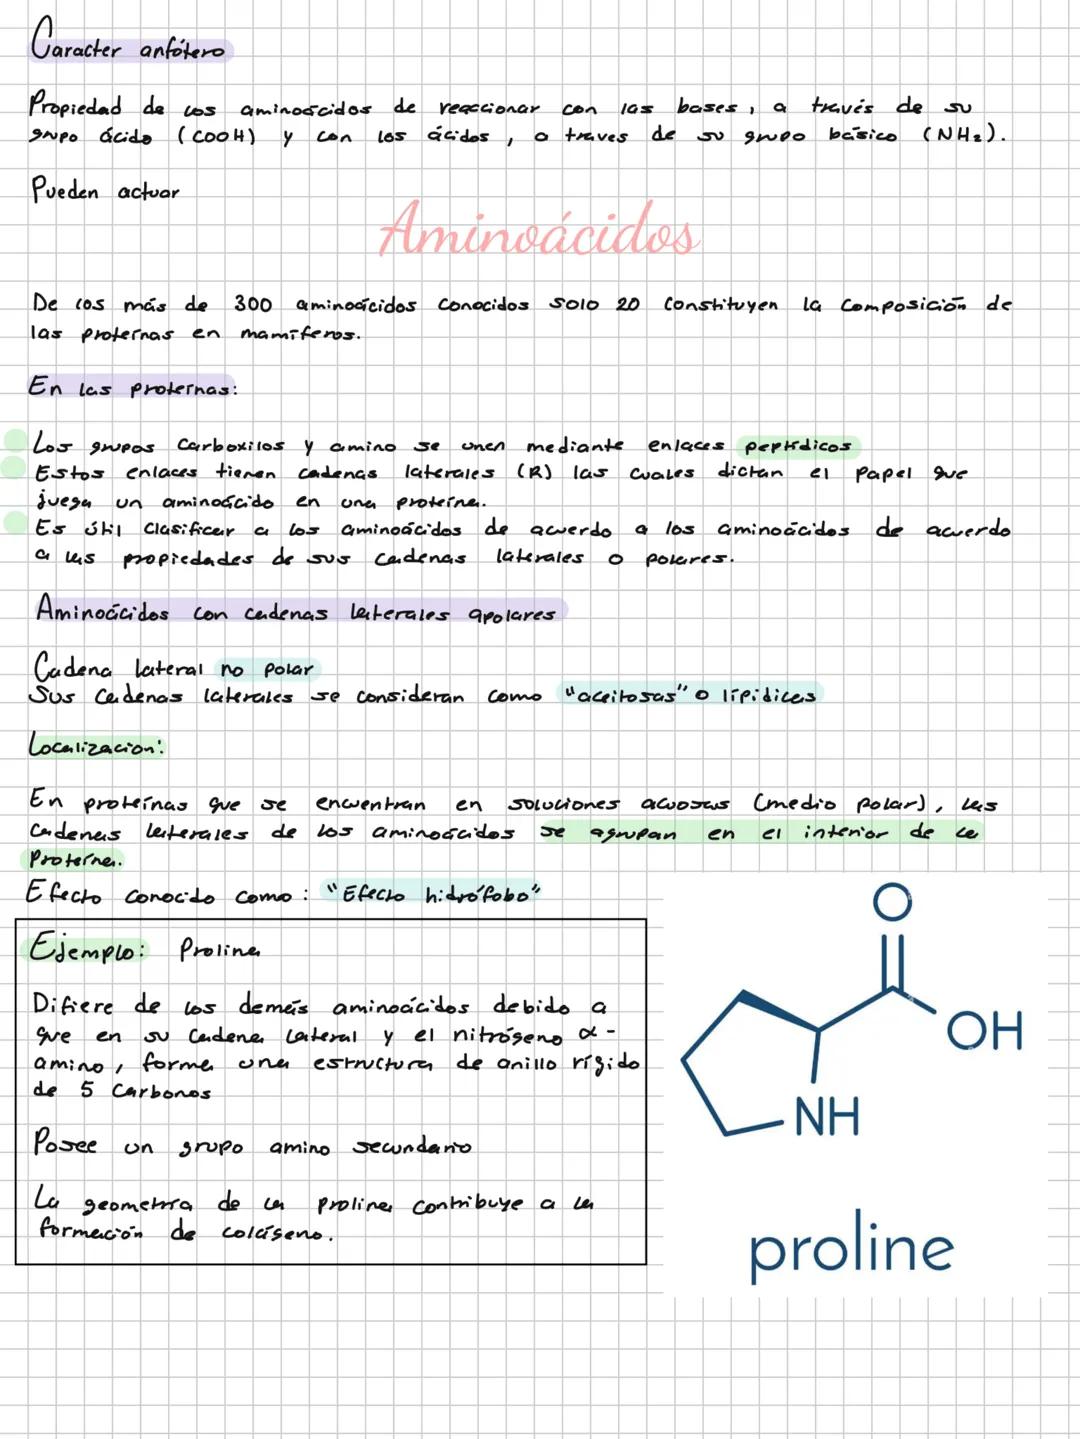 Caracter anfótero
Propiedad de los aminoácidos de reaccionar con las bases, a través de su
grupo ácido (COOH) y con los ácidos, a traves de su grupo básico (NH₂).
Pueden actuar
Aminoácidos
De los más de 300 aminoácidos conocidos solo 20 constituyen la composición de
las proteínas en mamíferos.
En las proteínas:
Los grupos carboxilos y amino se unen mediante enlaces peptídicos
Estos enlaces tienen cadenas laterales (R) las cuales dictan el papel que
juega un aminoácido en una proteína.
Es útil clasificar a los aminoácidos de acuerdo a los aminoácidos de acuerdo
a las propiedades de sus cadenas laterales o polares.
Aminoácidos con cadenas laterales apolares
Cadena lateral no polar
Sus cadenas laterales se consideran como "aceitosas" o lipídicas
Localizacion:
En proteínas que se encuentran en soluciones acuosas (medio polar), las
cadenas laterales de los aminoácidos se agrupan en el interior de la
proteína.
Efecto conocido como: "Efecto hidrófobo"
Ejemplo: Prolina
Difiere de los demás aminoácidos debido a
que en su cadena lateral y el nitrógeno α-
amino, forma una estructura de anillo rígido
de 5 carbonos
Posee un grupo amino secundario
La geometría de la prolina contribuye a la
formación de colágeno.
O
OH
NH
proline